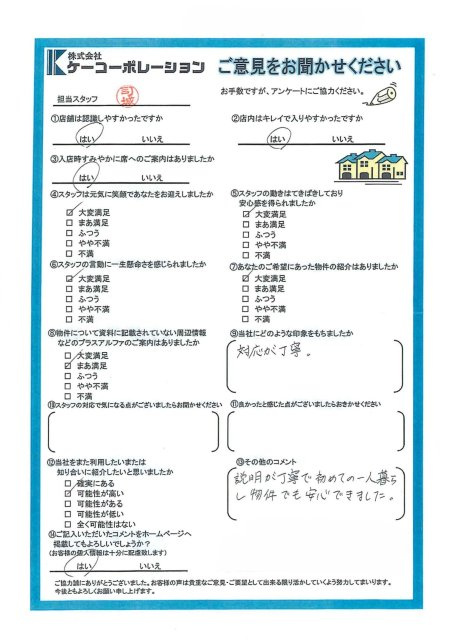 株式会社
ケーコーポレーション ご意見をお聞かせください
担当スタッフ
お手数ですが、アンケートにご協力ください。
①店舗は認識しやすかったですか
はい いいえ
②店内はキレイで入りやすかったですか
はい いいえ
③入店時すみやかに席へのご案内はありましたか
はい いいえ
④スタッフは元気に笑顔であなたをお迎えしましたか
☑ 大変満足
□ まあ満足
□ ふつう
□ やや不満
□ 不満
⑤スタッフの動きはてきぱきしており
安心感を得られましたか
☑ 大変満足
□ まあ満足
□ ふつう
□ やや不満
□ 不満
⑥スタッフの言動に一生懸命さを感じられましたか
☑ 大変満足
□ まあ満足
□ ふつう
□ やや不満
□ 不満
⑦あなたのご希望にあった物件の紹介はありましたか
☑ 大変満足
□ まあ満足
□ ふつう
□ やや不満
□ 不満
⑧物件について資料に記載されていない周辺情報
などのプラスアルファのご案内はありましたか
□ 大変満足
☑ まあ満足
□ ふつう
□ やや不満
□ 不満
⑨当社にどのような印象をもちましたか
対応が丁寧。
⑩スタッフの対応で気になる点がございましたらお聞かせください
⑪良かったと感じた点がございましたらおきかせください
⑫当社をまた利用したいまたは
知り合いに紹介したいと思いましたか
□ 確実にある
☑ 可能性が高い
□ 可能性がある
□ 可能性が低い
□ 全く可能性はない
⑬その他のコメント
説明が丁寧で初めての一人暮ら
し物件でも安心できました。
⑭ご記入いただいたコメントをホームページへ
掲載してもよろしいでしょうか?
(お客様の個人情報は十分に配慮致します)
はい いいえ
ご協力誠にありがとうございました。お客様の声は貴重なご意見・ご要望として出来る限り活かしていくよう努力してまいります。
今後ともよろしくお願い申し上げます。